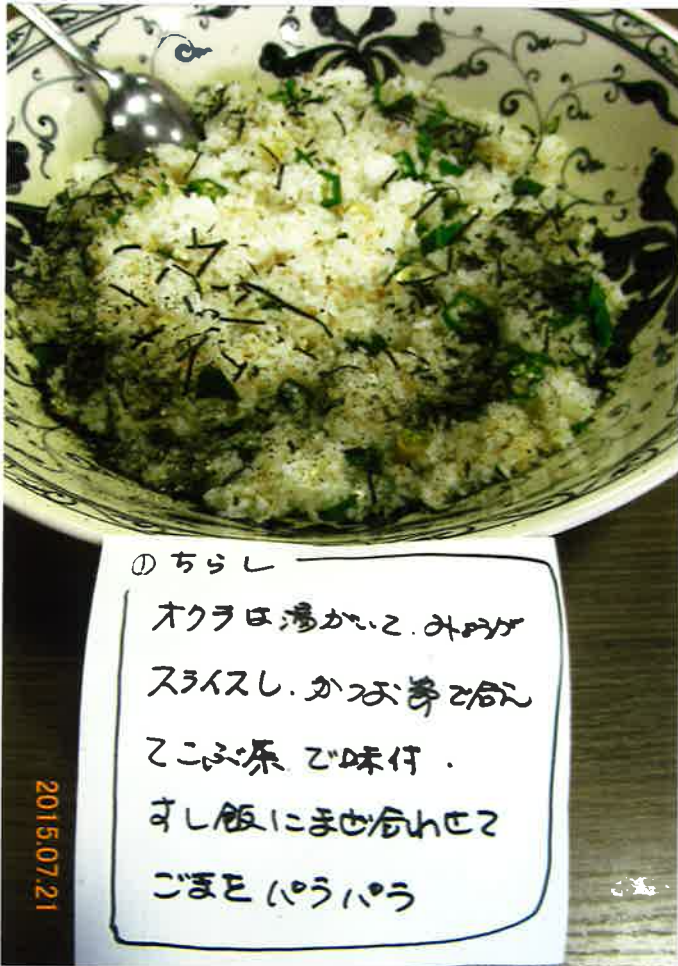 ① ちらし
オクラは湯がいて、みょうが
スライスし、かつお節で合え
てこぶ茶で味付.
すし飯にまぜ合わせて
ごまをパラパラ
2015.07.21